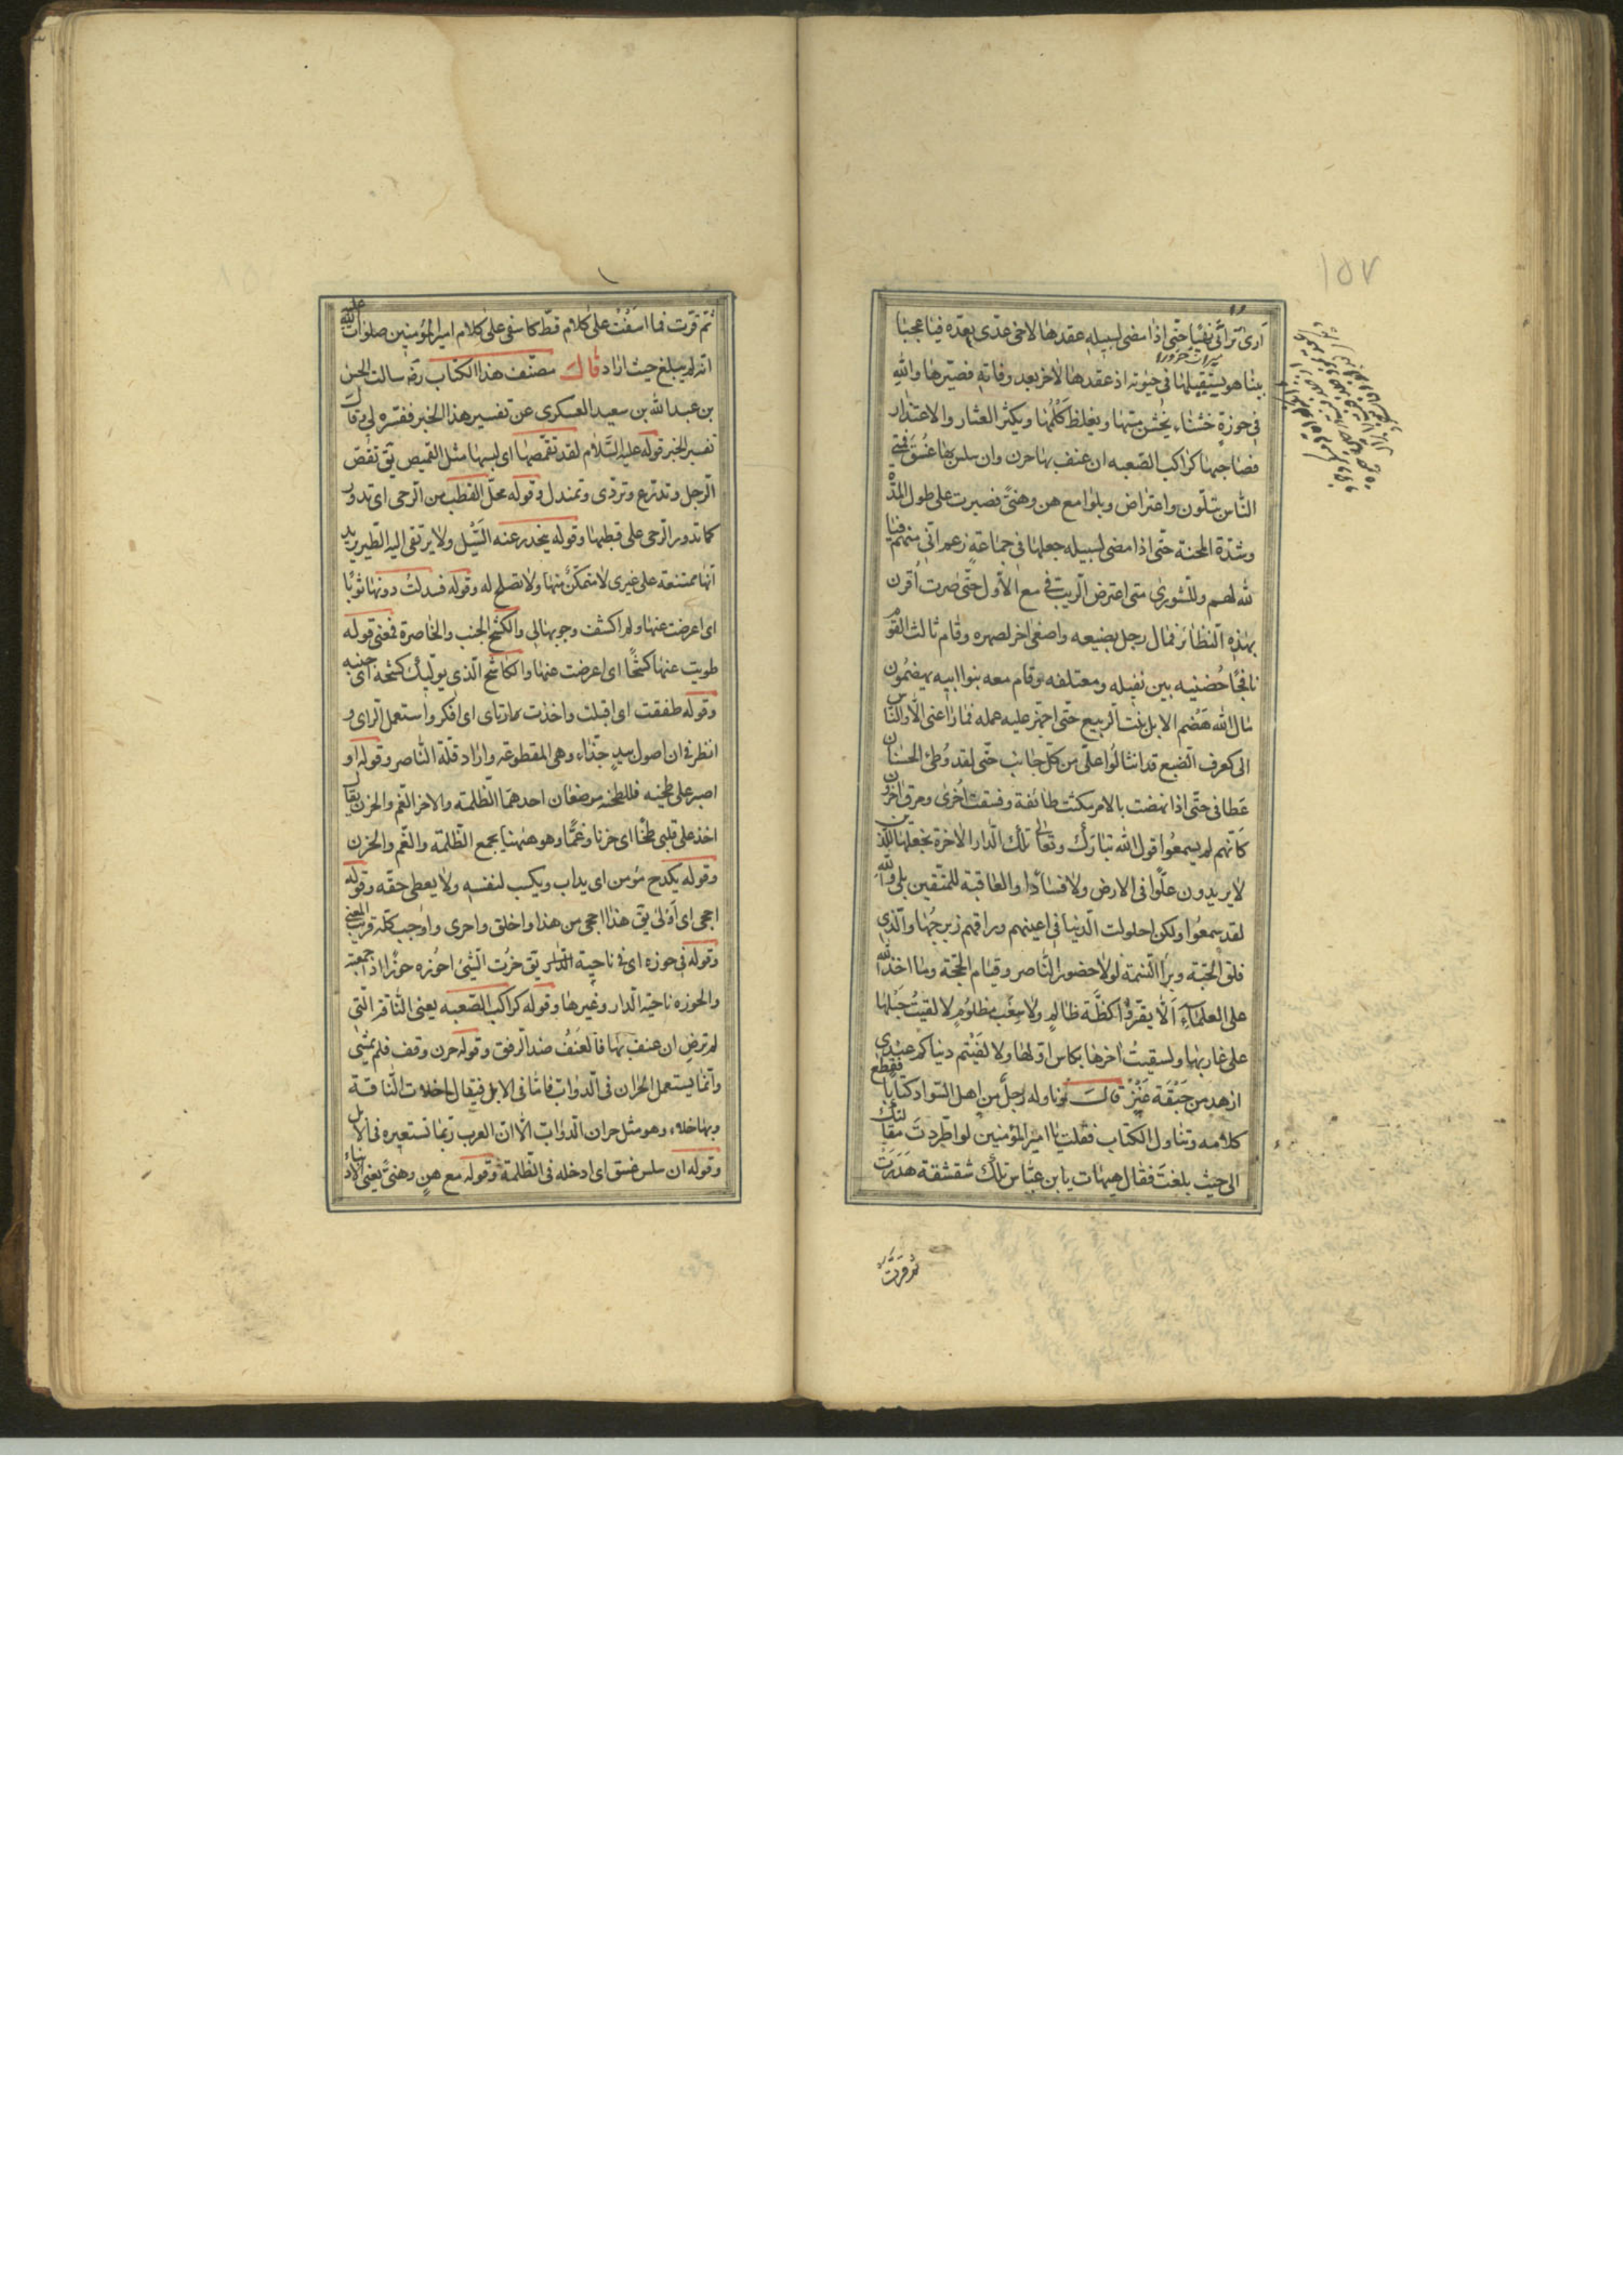 ١٥٧
أرى تراثي نهبا حتى اذا مضى لسبيله عقدها لأخي عدى بعده فيا عجبا
بينا هو يستقيلها في حيوته اذ عقدها لاخر بعد وفاته فصيرها والله
في حوزة خشناء يخشن مسها ويغلظ كلمها ويكثر العثار والاعتذار
فصاحبها كراكب الصعبه ان عنف بها حرن وان سلس بها غسق فمنى
الناس بتلون واعتراض وبلوا مع هن وهنى فصبرت على طول المدة
وشدة المحنة حتى اذا مضى لسبيله جعلها في جماعة زعم اني منهم فيا
لله لهم وللشورى متى اعترض الريب في مع الأول حتى صرت أقرن
بهذه النظائر فمال رجل بضبعه واصغى اخر لصهره وقام ثالث القوم
نافجا حضنيه بين نثيله ومعتلفه وقام معه بنوا ابيه يهضمون
مال الله هضم الابل نبت الربيع حتى اجهز عليه عمله فما راعنى الا والناس
الى كعرف الضبع قد انثالوا على من كل جانب حتى لقد وطئ الحسنان
عطافى حتى اذا نهضت بالامر نكثت طائفة وفسقت أخرى ومرق اخرون
كأنهم لم يسمعوا قول الله تبارك وتعالى تلك الدار الاخرة نجعلها للذين
لا يريدون علوا فى الارض ولا فسادا والعاقبة للمتقين بلى والله
لقد سمعوا ولكن احلولت الدنيا في اعينهم وراقهم زبرجها والذي
فلق الحبة وبرأ النسمة لولا حضور الناصر وقيام الحجة وما اخذ الله
على العلماء ألا يقروا كظة ظالم ولا سغب مظلوم لالقيت حبلها
على غاربها ولسقيت اخرها بكاس اولها ولالفيتم دنياكم عندي
ازهد من حبقة عنز قال وناوله رجل من اهل السواد كتابا فقطع
كلامه وتناول الكتاب فقلت يا امير المؤمنين لو اطردت مقالتك
الى حيث بلغت فقال هيهات يا ابن عباس تلك شقشقة هدرت
ثم قرت
ثم قرت فما اسفت على كلام قط كاسفى على كلام امير المؤمنين صلوات الله عليه
انه لم يبلغ حيث اراد قال مصنف هذا الكتاب ره سالت الحسن
بن عبد الله بن سعيد العسكرى عن تفسير هذا الخبر ففسره لى وقال
تفسير الخبر قوله عليه السلام لقد تقمصها اى لبسها مثل القميص يق تقمص
الرجل وتدرع وتردى وتمندل وقوله محل القطب من الرحى اى تدور
كما تدور الرحى على قطبها وقوله ينحدر عنه السيل ولا يرتقى اليه الطير يريد
انها ممتنعة على غيرى لا متمكن منها ولا تصلح له وقوله فسدلت دونها ثوبا
اى اعرضت عنها ولم اكشف وجوبها لى والكشح الجنب والخاصرة فمعنى قوله
طويت عنها كشحا اى اعرضت عنها والكاشح الذي يوليك كشحه اى جنبه
وقوله طفقت اى اقبلت واخذت ارتاى اى افكر واستعمل الراى و
انظر فى ان اصول بيد جذاء وهى المقطوعة واراد قلة الناصر وقوله او
اصبر على طخيه فللطخيه موضعان احدهما الظلمة والاخر الغم والحزن يقال
اخذ على قلبى طخا اى حزنا وغما وهو ههنا يجمع الظلمة والغم والحزن
وقوله يكدح مؤمن اى يداب ويكسب لنفسه ولا يعطى حقه وقوله
احجى اى أولى يق هذا احجى من هذا واخلق واحرى واوجب كله قريب المعنى
وقوله فى حوزه اى فى ناحية يق حزت الشيئ احوزه حوزا اذا جمعته
والحوزه ناحية الدار وغيرها وقوله كراكب الصعبه يعنى الناقة التى
لم ترض ان عنف بها فالعنف ضد الرفق وقوله حرن وقف فلم يمشى
وانما يستعمل الحران فى الدواب فاما فى الابل فيقال خلات الناقة
وبها خلاء وهو مثل حران الدواب الا ان العرب ربما تستعيره فى الابل
وقوله ان سلس غسق اى ادخله فى الظلمة وقوله مع هن وهنى يعنى الادنياء